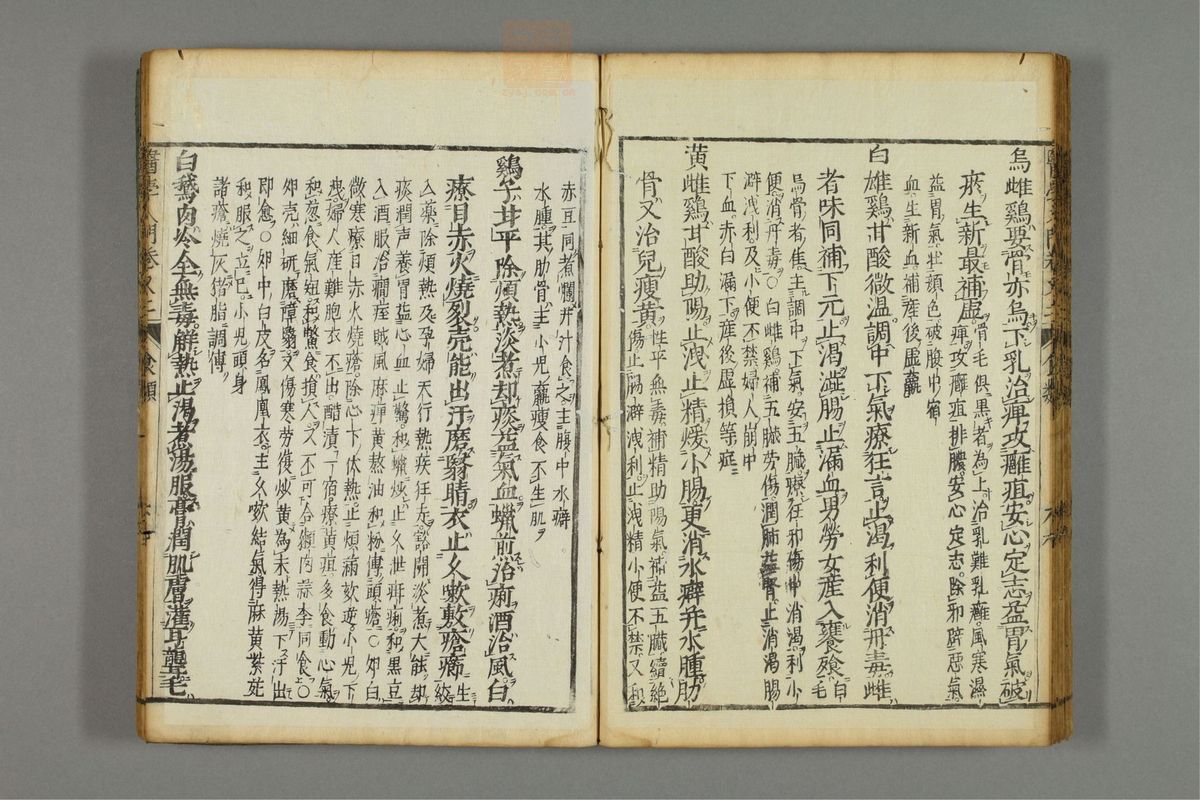 烏雌鷄要骨亦烏下乳治痺攻癰疽安心定志盈胃氣破
瘀生新最補虛骨毛俱黑者為上治乳難乳癰風寒濕
痺攻癰疽排膿安心定志除邪辟惡氣
益胃氣壯顏色破腹中宿
血生新血補產後虛羸
白雄鷄甘酸微溫調中下氣療狂言止渴利便消丹毒雌
者味同補下元止渴澁腸止漏血男勞女産入饔飱白毛
烏骨者焦主調中下氣安五臟療狂邪傷中消渴利小
便消丹毒○白雌鷄補五臟勞傷潤肺腎止消渴腸
澼洩利及小便不禁婦人崩中
下血赤白漏下産後虛損等症
黃雌鷄甘酸助陽止洩止精煖小腸更消水癖并水腫肋
骨又治兒瘦黃性平無毒補精助陽氣補益五臟續絶
傷止腸澼洩利止洩精小便不禁又和
赤豆同煮爛并汁食之主腹中水癖
水腫其肋骨主小兒羸瘦食不生肌
鷄子甘平除煩熱淡煮却痰益氣血蠟煎治痢酒治風白
療目赤火燒裂壳能出汗磨翳睛衣止久嗽敷瘡癤生絞
入藥除煩熱及孕婦天行熱疾狂走豁開淡煮大能却
痰潤声養胃益心血止驚和蠟炒止久泄痢和黑豆
入酒服治癇痙賊風麻痺黃熬油和粉傅頭瘡○卵白
微寒療目赤火燒瘡除心下伏熱止煩滿欬逆小兒下
洩婦人産難胞衣不出醋漬一宿療黃疸多食動心氣
和葱食氣短和鱉食損人又不可合獺肉蒜李同食○
卵壳細研磨障翳又傷寒勞復炒黃為末熱湯下汗出
即愈○卵中白皮名鳳凰衣主久嗽結氣得麻黃紫菀
和服之立已小兒頭身
諸瘡燒灰猪脂調傅
白鵝肉冷全無毒解熱止渴煮湯服膏潤肌膚灌耳聾毛